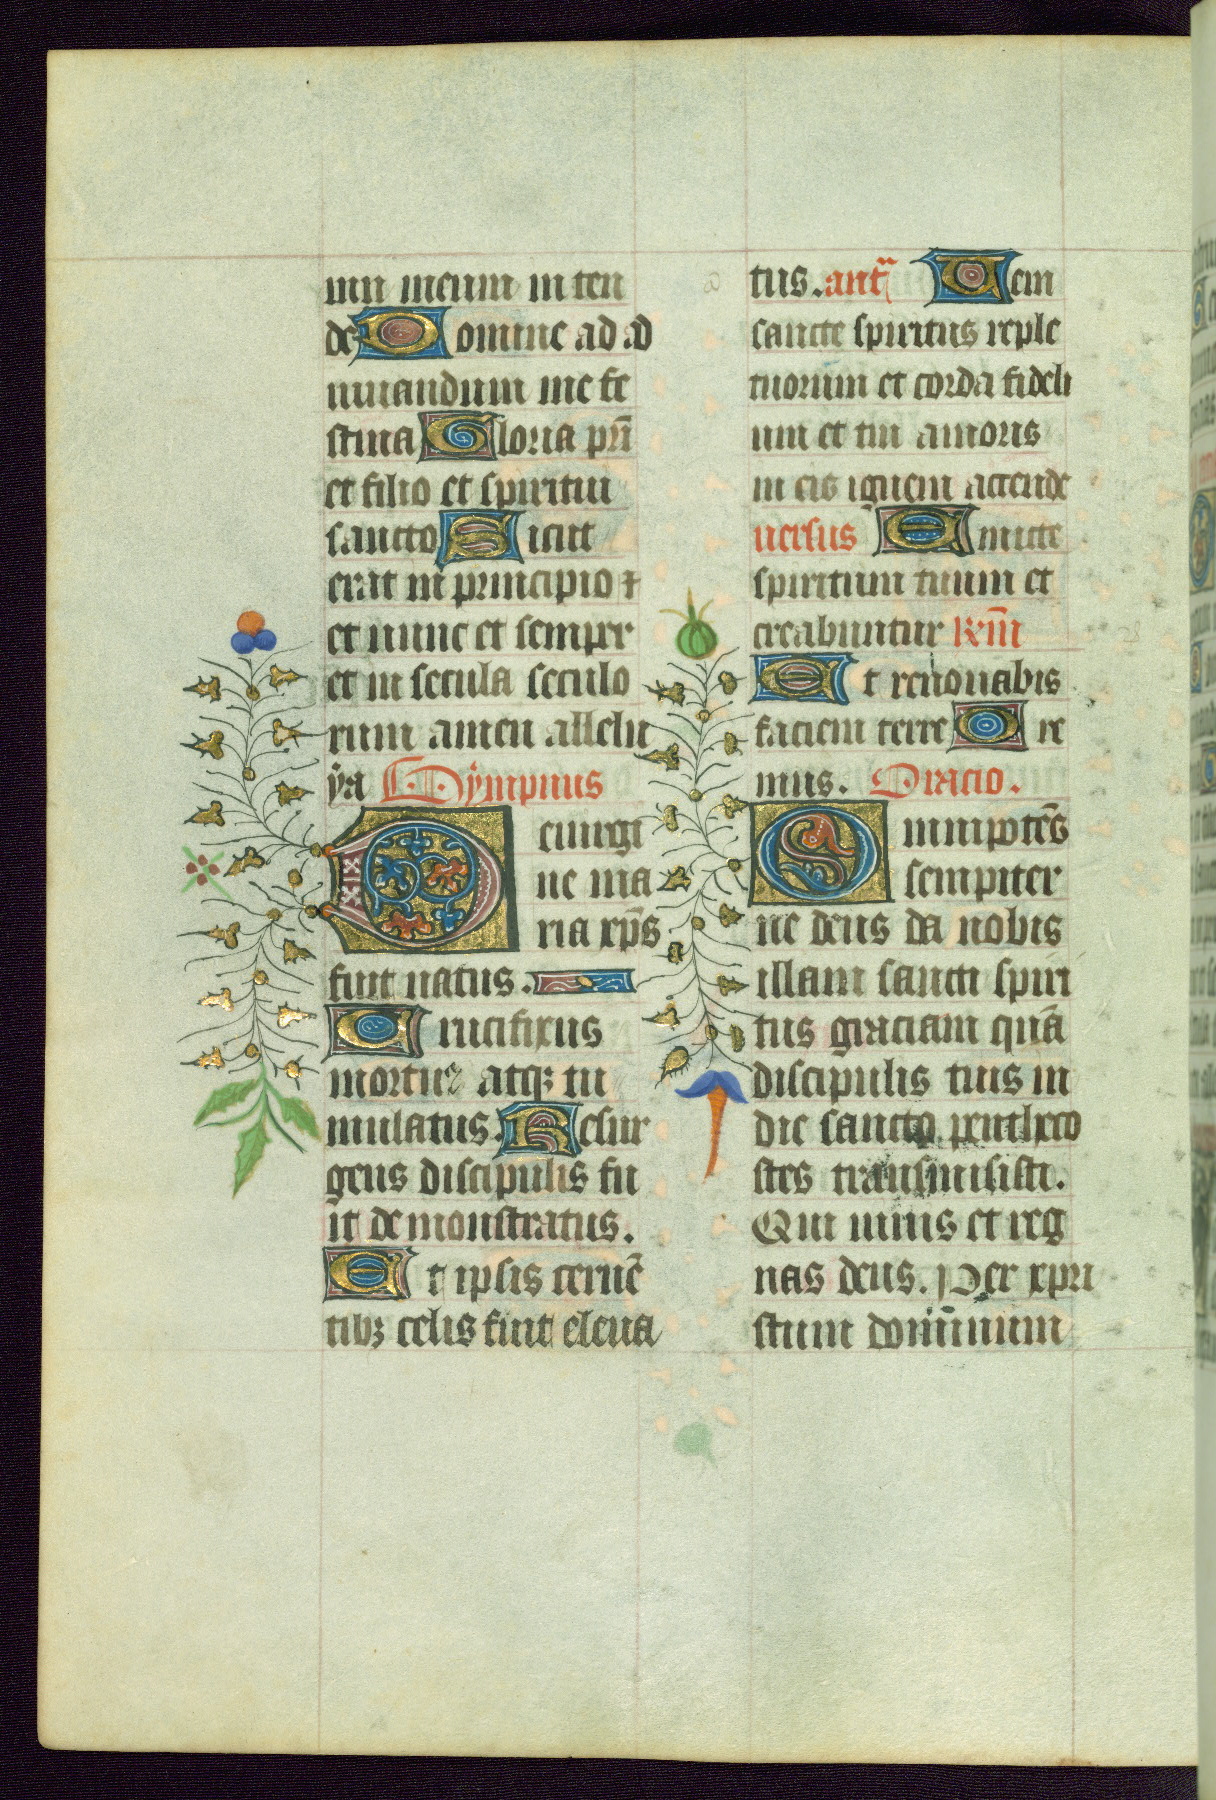 um meum inten
de Domine ad ad
iuuandum me fe
stina Gloria pri̅
et filio et spiritui
sancto Sicut
erat in principio ⁊
et nunc et semper
et in secula seculo
rum amen allelu
ÿa Hÿmpnus
De uirgi
ne ma
ria xp̅s
fuit natus.
Crucifixus
mortuꝰ atqꝫ tu
mulatus. Resur
gens discipulis fu
it demonstratus.
Et ipsis cerne̅
tibꝫ celis fuit eleua
tus. ant̅ Ueni
sancte spiritus reple
tuorum et corda fideli
um et tui amoris
in eis ignem accende
uersus Emitte
spiritum tuum et
creabuntur Rm̅
Et renouabis
faciem terre Ore
mus. Oracio.
Omnipote̅s
sempiter
ne deus da nobis
illam sancti spiri
tus graciam qua̅
discipulis tuis in
die sancto pentheco
stes transmisisti.
Qui uiuis et reg
nas deus. Per xpri
stum dominum